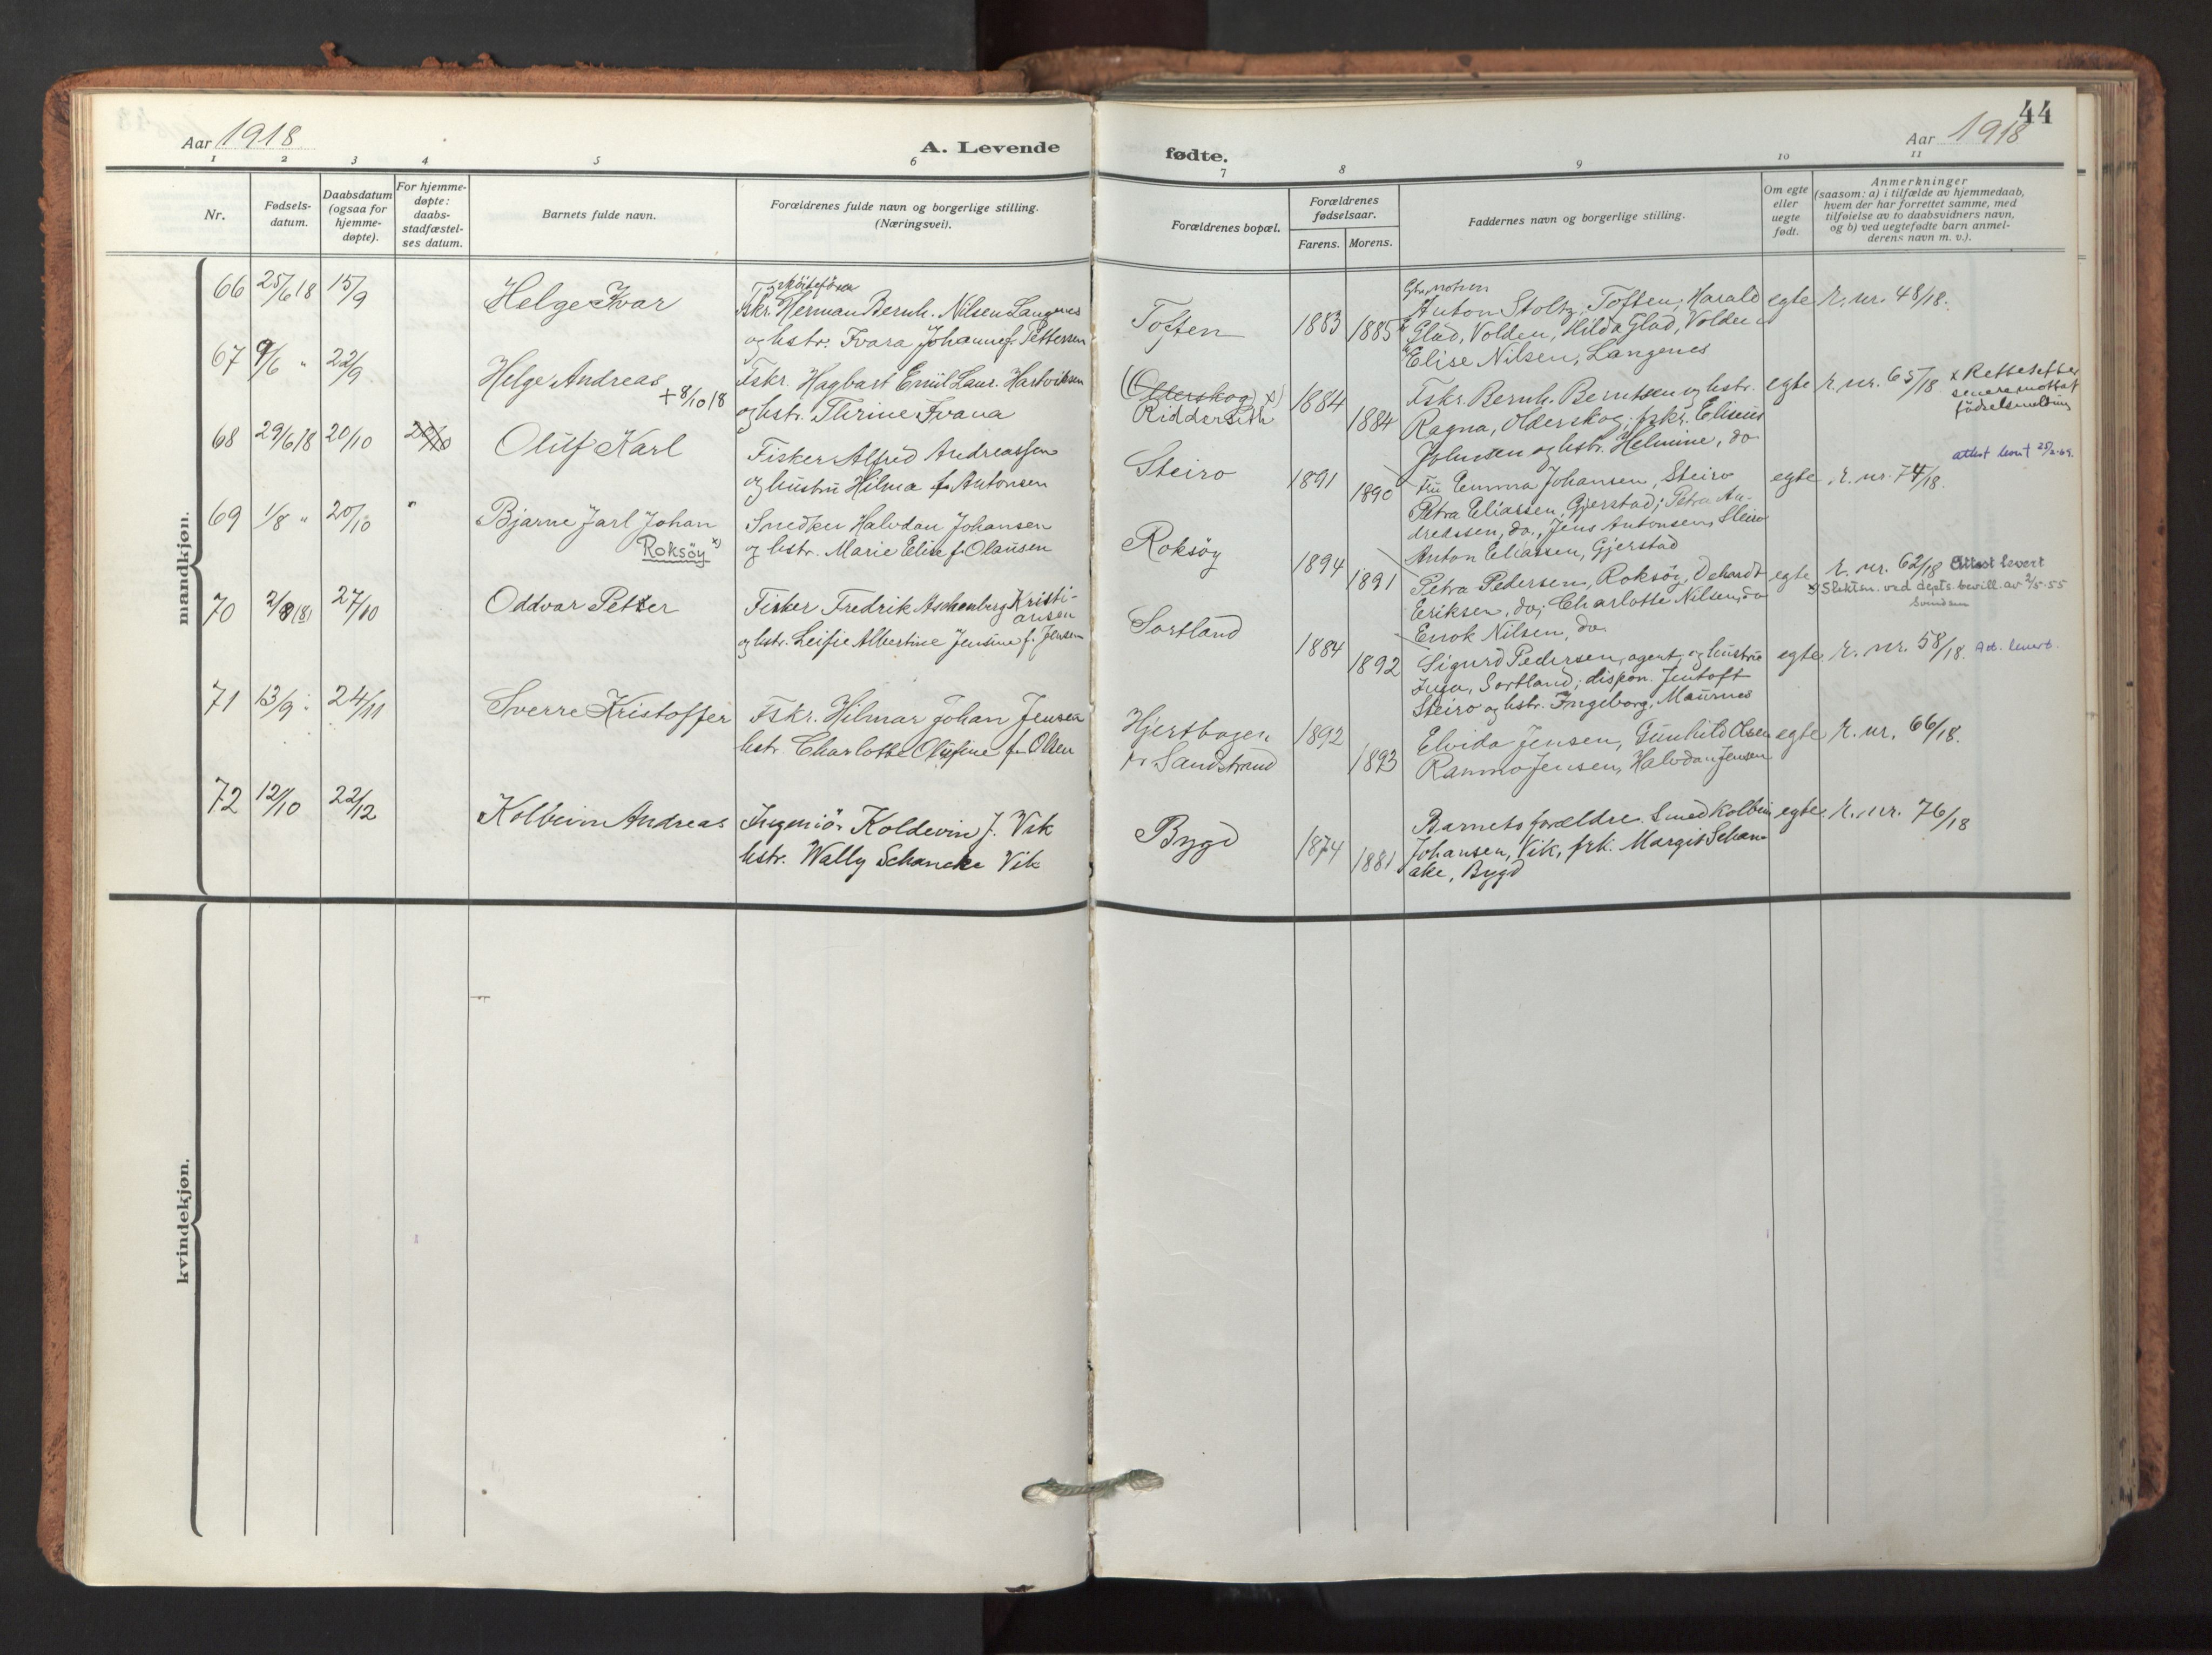 44
Aar 1918
A. Levende
fødte.
Aar 1918
1 2 3 4 5 6 7 8 9 10 11
Nr.
Fødsels-
datum.
Daabsdatum
(ogsaa for
hjemme-
døpte).
For hjemme-
døpte:
daabs-
stadfæstel-
ses datum.
Barnets fulde navn.
Forældrenes fulde navn og borgerlige stilling.
(Næringsvei).
Forældrenes bopæl.
Forældrenes
fødselsaar.
Farens. Morens.
Faddernes navn og borgerlige stilling.
Om egte
eller
uegte
født.
Anmerkninger
(saasom: a) i tilfælde av hjemmedaab,
hvem der har forrettet samme, med
tilføielse av to daabsvidners navn,
og b) ved uegtefødte barn anmel-
derens navn m. v.).
mandkjøn.
66 25/6 18 15/9
Helge Ivar
Fskr. Herman Bernh. Nilsen Langenes
og hstr. Ivara Johanne f. Pettersen
Toften
1883 1885
Anton Stoltz, Toften; Harald
Glad, Volden, Hilda Glad, Volden
Elise Nilsen, Langenes
egte
r. nr. 48/18.
67 9/6 " 22/9
Helge Andreas
+ 8/10 18
Fskr. Hagbart Emil Laur. Hartviksen
og hstr. Thrine Ivana
(Olderskog) x)
Ridderseth
1884 1884
Fskr. Bernh. Berntsen og hstr.
Ragna, Olderskog; fskr. Eliseus
Johnsen og hstr. Helmine, do
egte
r. nr. 65/18
x Rettes efter
senere mottat
fødselsmelding
68 29/6 18 20/10 20/10
Oluf Karl
Fisker Alfred Andreassen
og hustru Hilma f. Antonsen
Steiro
1891 1890
Fru Emma Johansen, Steiro
Petra Eliassen, Gjerstad; Petra An-
dreassen, do., Jens Antonsen, Steiro
Anton Eliassen, Gjerstad
egte
r. nr. 74/18.
attest levert 25/2-69.
69 1/8 " 20/10 "
Bjarne Jarl Johan
Roksöy x)
Snedker Halvdan Johansen
og hstr. Marie Elise f. Olausen
Roksöy
1894 1891
Petra Pedersen, Roksöy, Dehardt
Eriksen, do; Charlotte Nilsen, do
Enok Nilsen, do.
egte
r. nr. 62/18 Attest levert
x) Slektsn. ved depts. bevill. av 2/5-55
Svindsen
70 2/8 (8) 27/10
Oddvar Petter
Fisker Fredrik Aschenberg Kristi-
ansen
og hstr. Leifie Albertine Jensine f. Jensen
Sortland
1884 1892
Sigurd Pedersen, agent, og hustru
Inga, Sortland; dispon. Jentoft
Steiro og hstr. Ingeborg, Maurnes
egte
r. nr. 58/18.
Att. levert.
71 13/9 24/11
Sverre Kristoffer
Fskr. Hilmar Johan Jensen
hstr. Charlotte Olufine f. Olsen
Hjerthagen
pr Sandstrand
1892 1893
Elvida Jensen, Gunhild Olsen
Ranmo Jensen, Halvdan Jensen
egte
r. nr. 66/18.
72 12/10 22/12
Kolbein Andreas
Ingeniör Koldevin J. Vik
hstr. Wally Schancke Vik
Bygd
1874 1881
Barnets forældre. Smed Kolbein
Johansen, Vik, frk. Margit Schan-
cke, Bygd
egte
r. nr. 76/18
kvindekjøn.